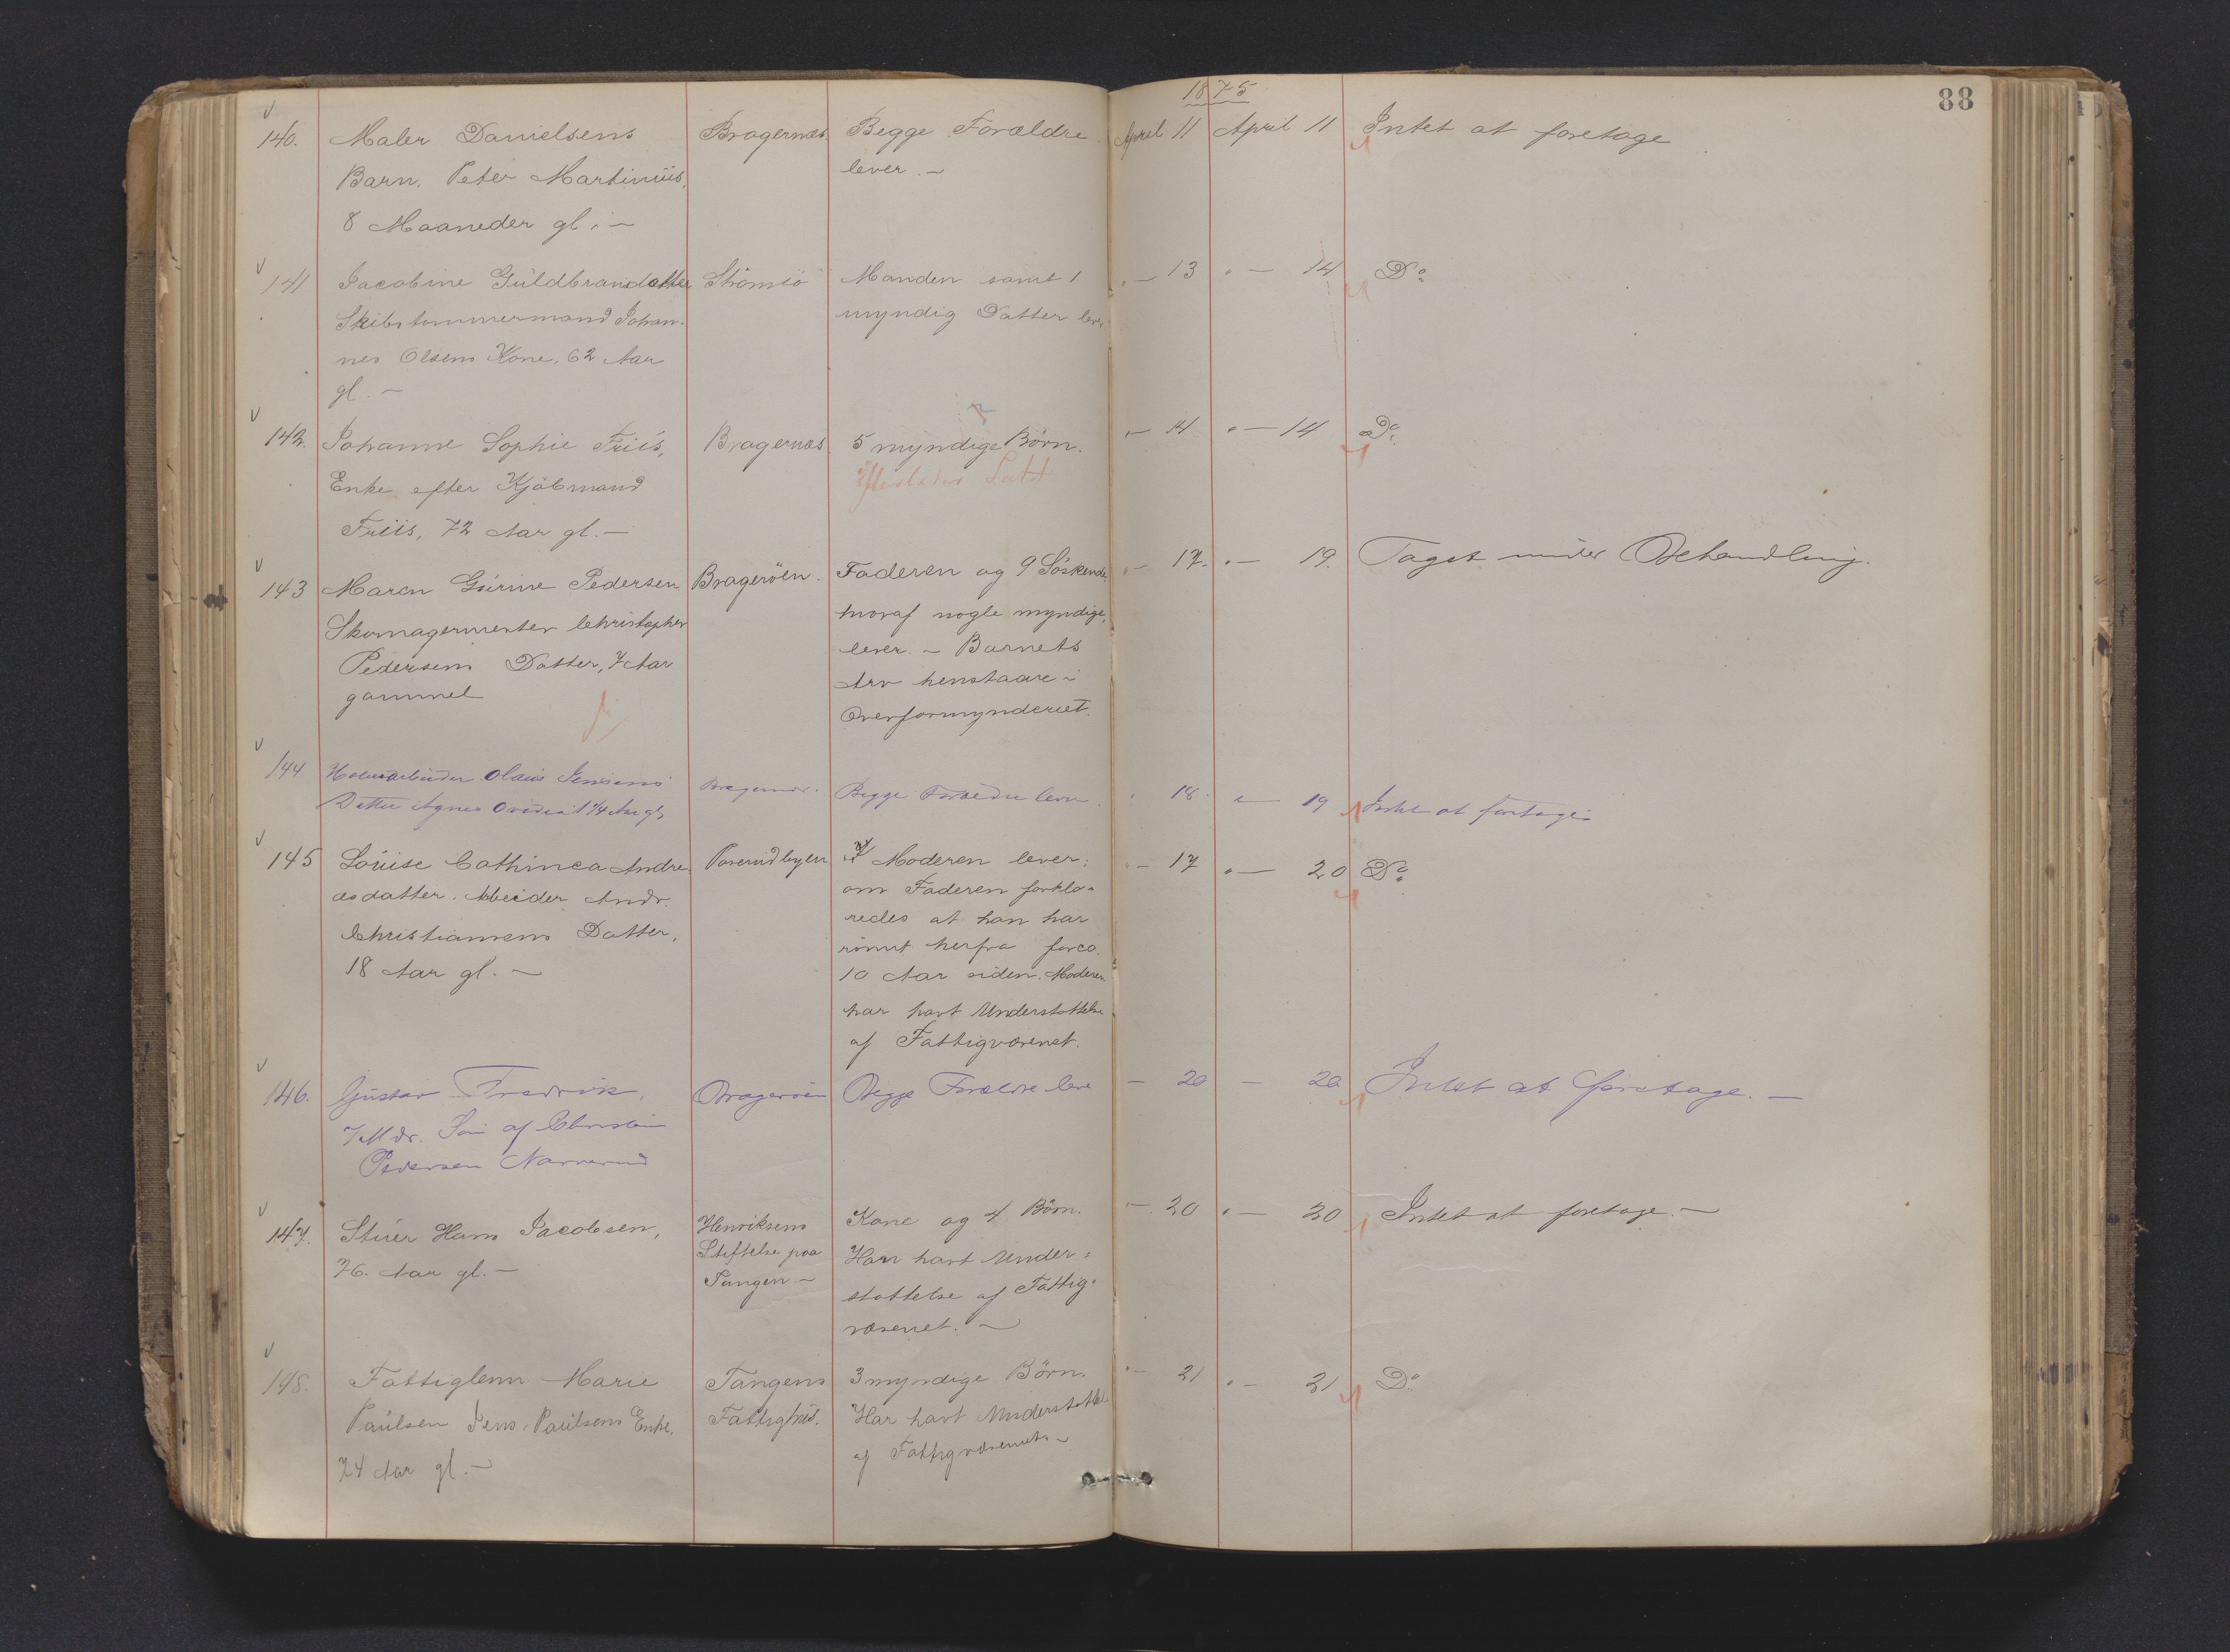 1875
88
140. Maler Danielsens
Barn, Peter Martinius,
8 Maaneder gl. —
Bragernæs
Begge Forældre
lever. —
April 11 April 11 Intet at foretage
141 Jacobine Guldbrandsdatter
Skibstømmermand Johan-
nes Olsens Kone, 62 Aar
gl. —
Strømsö
Manden samt 1
myndig Datter lever
" — 13 " — 14 Do
142. Johanne Sophie Friis,
Enke efter Kjöbmand
Friis, 72 Aar gl. —
Bragernæs
5 myndige Börn.
" — 14 " — 14 Do
143 Maren Gurine Pedersen
Skomagermester Christopher
Pedersens Datter, 7 Aar
gammel
Bragerøen.
Faderen og 9 Söskende
hvoraf nogle myndige,
lever. — Barnets
Arv henstaar i
Overformynderiet.
" — 17. " — 19. Taget under Behandling.
144 Olaus Jensens
Datter Agnes Ovidia 1 1/4 Aar gl
Bragernæs.
Begge Forældre lever.
" 18. " — 19 Intet at foretage
145 Louise Cathinca Andre-
asdatter. Arbeider Andr.
Christiansens Datter,
18 Aar gl. —
Moderen lever;
om Faderen forkla-
redes at han har
römt herfra for ca.
10 Aar siden. Moderen
har havt Understøttelse
af Fattigvæsenet.
" — 17 " — 20 Do
146. Gustav Fredrik,
7 Mdr. Sön af Christian
Pedersen
Bragerøen
Begge Forældre leve
— 20 — 20 Intet at foretage. —
147. Stuer Hans Jacobsen,
76. Aar gl. —
Henriksens
Stiftelse paa
Tangen. —
Kone og 4 Börn.
Har havt Under-
støttelse af Fattig-
væsenet. —
" — 20 " — 20 Intet at foretage. —
148. Fattiglem Marie
Paulsen Jens Paulsens Enke,
74 Aar gl. —
Tangens
Fattighus.
3 myndige Börn.
Har havt Understøttelse
af Fattigvæsenet. —
" — 21 " — 21 Do